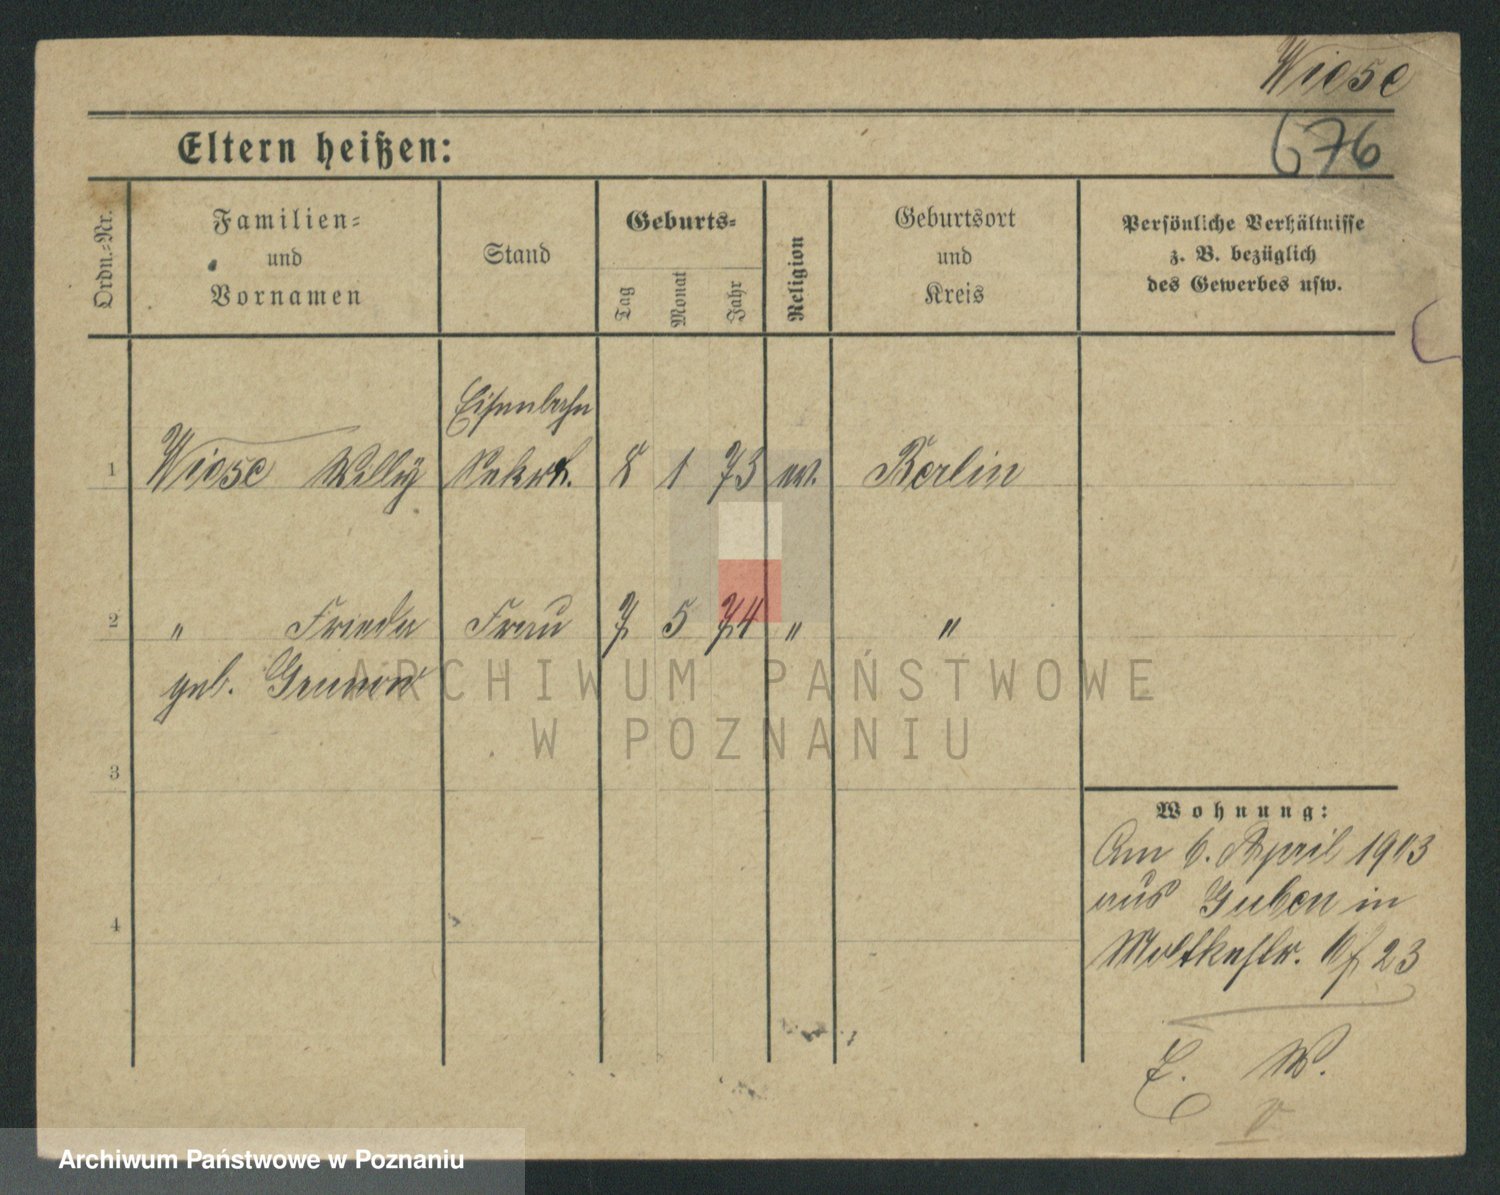 Wiese
676
Eltern heißen:
Ordn.-Nr.
Familien-
und
Vornamen
Stand
Geburts-
Tag
Monat
Jahr
Religion
Geburtsort
und
Kreis
Persönliche Verhältnisse
z. B. bezüglich
des Gewerbes usw.
Eisenbahn
1 Wiese Willy Sekret. 8 1 73 ev. Berlin
2 " Frieda Frau 7 5 74 " "
geb. Grunow
3
4
Wohnung:
Am 6. April 1903
aus Guben in
Moltkestr. 23
E. W.
ARCHIWUM PAŃSTWOWE
W POZNANIU
Archiwum Państwowe w Poznaniu